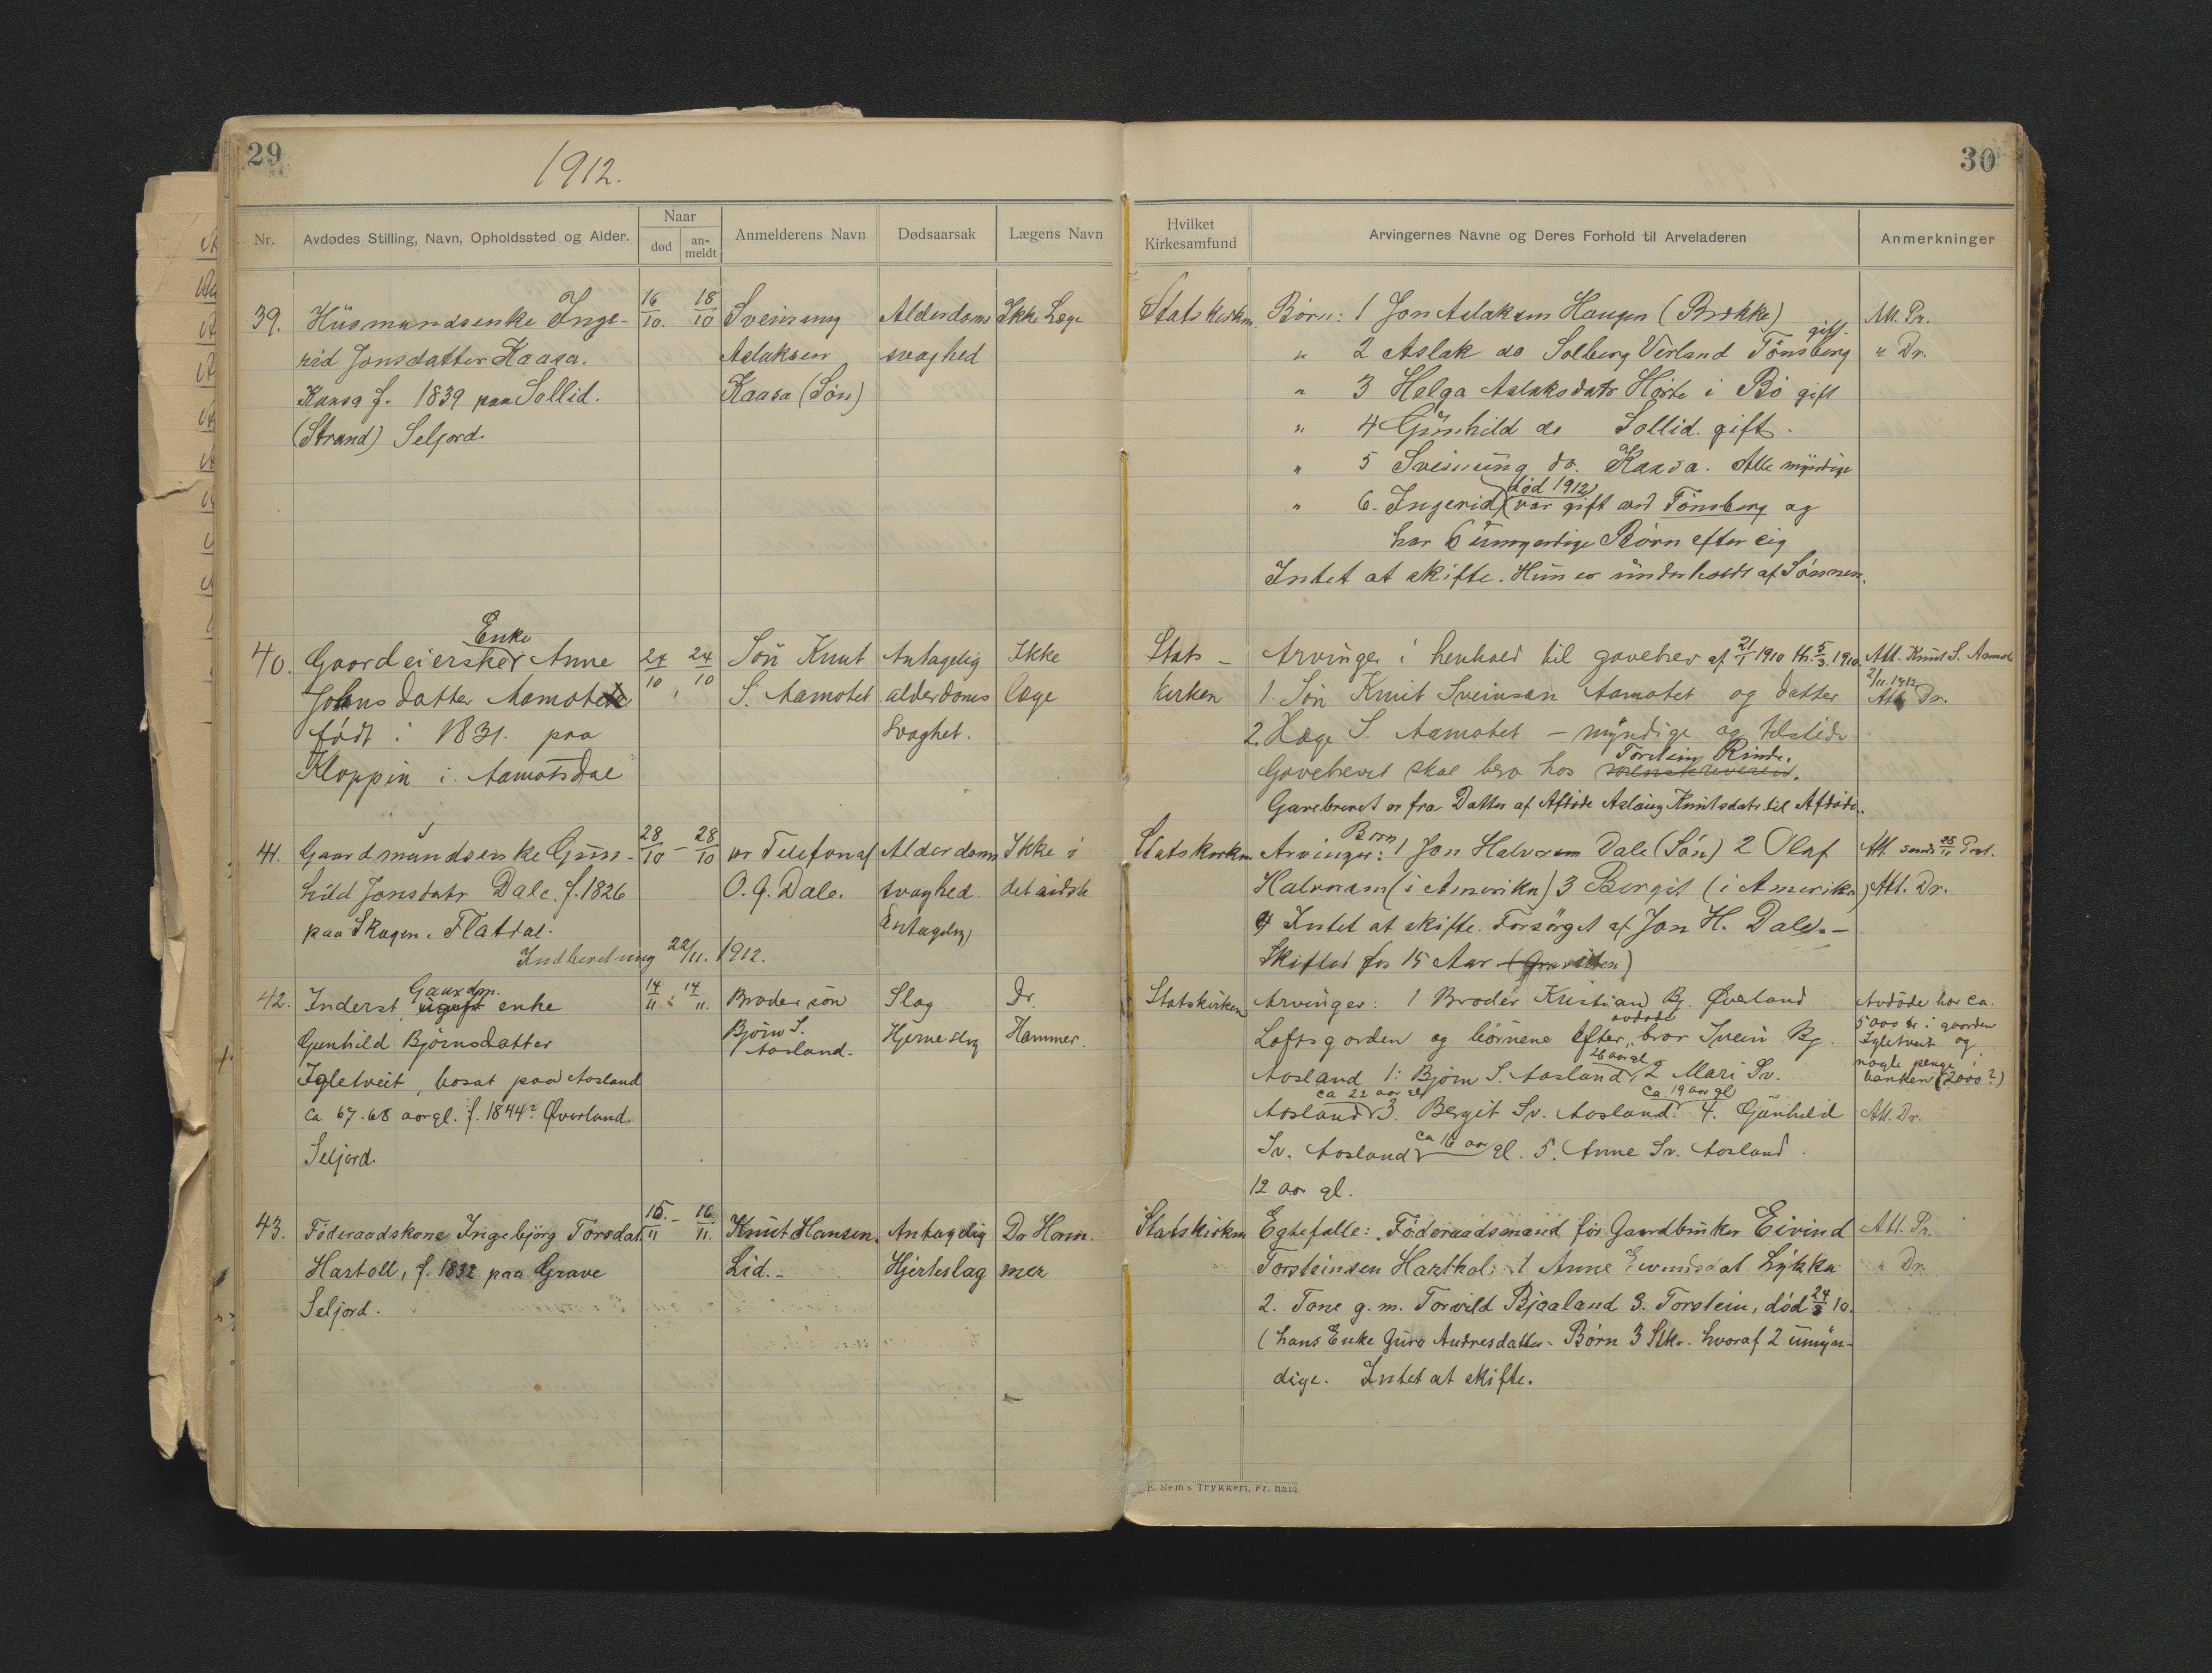 29
1912.
30
Nr.
Avdødes Stilling, Navn, Opholdssted og Alder.
Naar
død
an-
meldt
Anmelderens Navn
Dødsaarsak
Lægens Navn
Hvilket
Kirkesamfund
Arvingernes Navne og Deres Forhold til Arveladeren
Anmerkninger
39. Husmandsenke Inge- 16/10. 18/10 Sveinung Alderdoms Ikke Læge
rid Jonsdatter Kaasa. Aslaksen svaghed
Kaasa f. 1839 paa Sollid. Kaasa (Søn)
(Strand) Seljord.
Statskirken. Børn: 1 Jon Aslaksen Haugen (Brække) Att. Pr.
gift.
" 2 Aslak do Solberg Verland Tønsberg " Dr.
" 3 Helga Aslaksdatr Hørte i Bø gift
" 4 Gunhild do Sollid. gift.
" 5 Sveinung do. Kaasa. Alle myndige
død 1912
" 6. Ingerid (var gift ved Tønsberg og
har 6 umyndige Børn efter sig
Intet at skifte. Hun er underholdt af Sønnen.
Enke
40. Gaardeiersker Anne 24/10 24/10 Søn Knut Antagelig Ikke
Johnsdatter Aamotet S. Aamotet alderdoms læge
født i 1831. paa svaghet.
Kloppin i Aamotsdal
Stats- Arvinger i henhold til gavebrev af 21/1 1910 th. 5/3. 1910. Att. Knut S. Aamote
2/11. 1912
kirken 1. Søn Knut Sveinsen Aamotet og datter Att. Dr.
2. Hæge S. Aamotet - myndige og tilstede
Torstein Rinde.
Gavebrevet skal bero hos sorenskriveren.
Gavebrevet er fra Datter af Afdøde Aslaug Knutsdatr. til Afdøde.
41. Gaardmandsenke Gun- 28/10 - 28/10 pr Telefon af Alderdoms Ikke i
hild Jonsdatr Dale. f. 1826 O. J. Dale. svaghed det sidste
paa Skogen. Flatdal. Antagelig
Indberetning 22/11. 1912.
Børn
Statskirken Arvinger: 1 Jon Halvorsen Dale (Søn) 2 Olaf Att. sendt 25/11
Halvorsen (i Amerika) 3 Bergit (i Amerika) Att. Dr.
4 Intet at skifte. Forsørget af Jon H. Dale. -
Skiftet for 15 Aar
Gaardm.
42. Inderst, ugift enke 14/11 : 14/11. Brodersøn Slag Dr.
Gunhild Bjørnsdatter Bjørn S. Hjerneslag Hammer.
Igletveit, bosat paa Aasland Aasland.
ca 67-68 aar gl. f. 1844? Øverland.
Seljord.
Statskirken Arvinger: 1 Broder Kristian Bj. Øverland Avdøde har ca.
avdøde 5000 kr i gaarden
Loftsgarden og børnene efter bror Svein Bj. Igletveit og
26 aar gl nogle penge i
Aasland 1: Bjørn S. Aasland, 2 Mari Sv. banken (2000?)
ca 22 aar gl ca 19 aar gl
Aasland 3. Bergit Sv. Aasland. 4. Gunhild Att. Dr.
Sv. Aasland ca 16 aar gl. 5. Anne Sv. Aasland
12 aar gl.
43. Føderaadskone Ingebjørg Torsdat. 15./11 - 16/11. Knut Hansen. Antagelig Dr Ham-
Hartoll, f. 1832 paa Grave Lid. - Hjerteslag mer
Seljord.
Statskirken Egtefælle: Føderaadsmand før Gaardbruker Eivind Att. Pr.
Torsteinsen Hartkol: 1 Anne Eivindsdat Lykkja " Dr.
2. Tone g. m. Torvild Bjaaland 3. Torstein, død 24/3 10.
(hans Enke Guro Andresdatter. Børn 3 Stk. hvoraf 2 umyn-
dige. Intet at skifte.
E. Sem's Trykkeri, Fr.hald